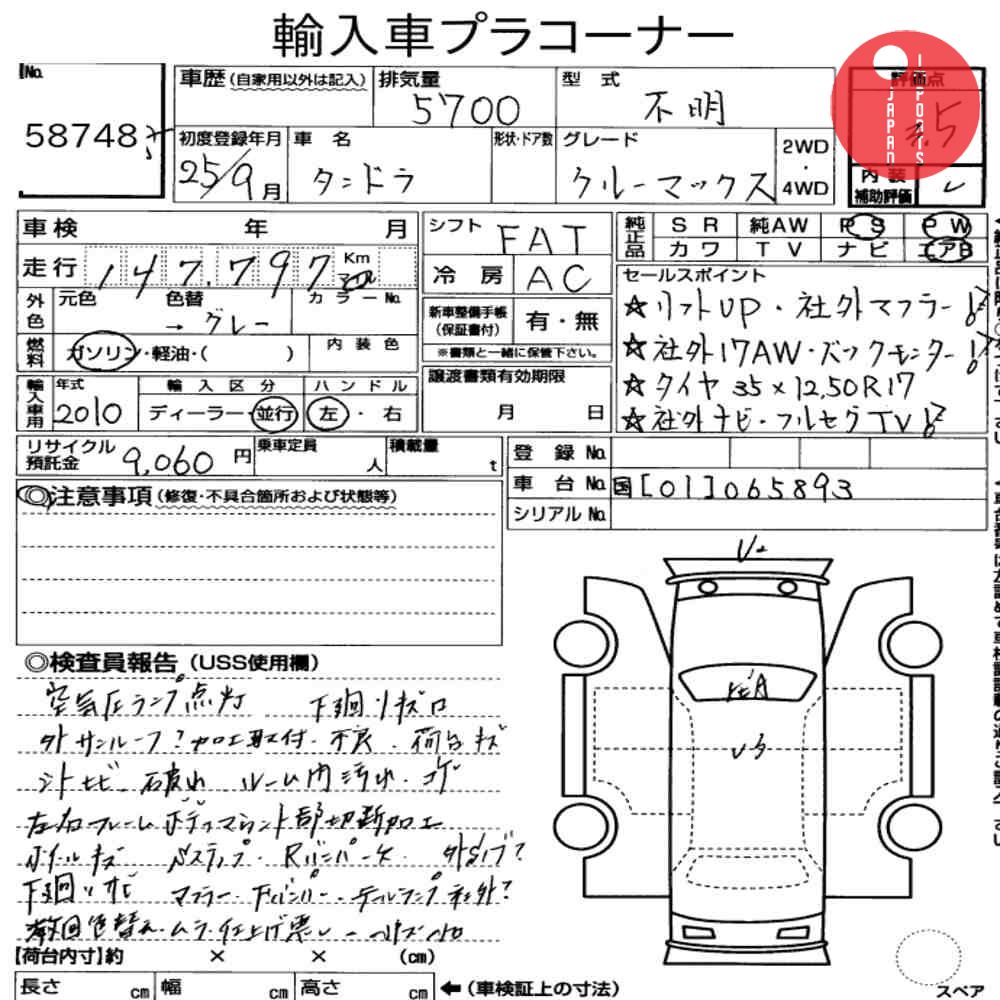 輸入車プラコーナー
JAPAN IMPORTS
No. 58748
車歴 (自家用以外は記入)
排気量 5700
型式 不明
評価点 3.5
初度登録年月 25/9月
車名 タンドラ
形状・ドア数
グレード クルーマックス
2WD・4WD
内装補助評価
車検 年 月
走行 147,797 Km マイル
外色 元色 色替 → グレー カラーNo.
燃料 ガソリン・軽油・( ) 内装色
輸入車用 年式 2010 輸入区分 ディーラー・並行 ハンドル 左・右
リサイクル預託金 9,060円 乗車定員 人 積載量 t
シフト FAT
冷房 AC
新車整備手帳(保証書付) 有・無
※書類と一緒に保管下さい。
譲渡書類有効期限
月 日
純正品 SR 純AW PS PW
カワ TV ナビ エアB
セールスポイント
☆リフトUP・社外マフラー
☆社外17AW・バックモニター
☆タイヤ 35×12.50R17
☆社外ナビ・フルセグTV
登録No.
車台No. 国[01]065893
シリアルNo.
◎注意事項 (修復・不具合箇所および状態等)
◎検査員報告 (USS使用欄)
空気圧ランプ点灯 下廻りキズ
外サンルーフ?加工取付・不良・荷台キズ
シート 破れ ルーム内汚れ・コゲ
左右フレームボディマウント部切断加工
ホイルキズ Sステップ・Rバンパー
下廻りサビ マフラー・Fバンパー・テールランプ社外?
色替え・ムラ・仕上げ悪い
【荷台内寸】約 × × (cm)
長さ cm 幅 cm 高さ cm ←(車検証上の寸法)
スペア